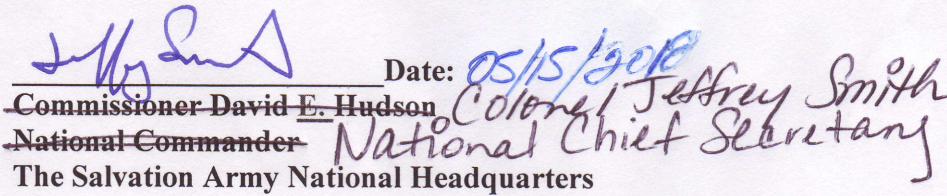 Jeffrey Smith Date: 05/15/2018
Commissioner David E. Hudson Colonel Jeffrey Smith
National Commander National Chief Secretary
The Salvation Army National Headquarters